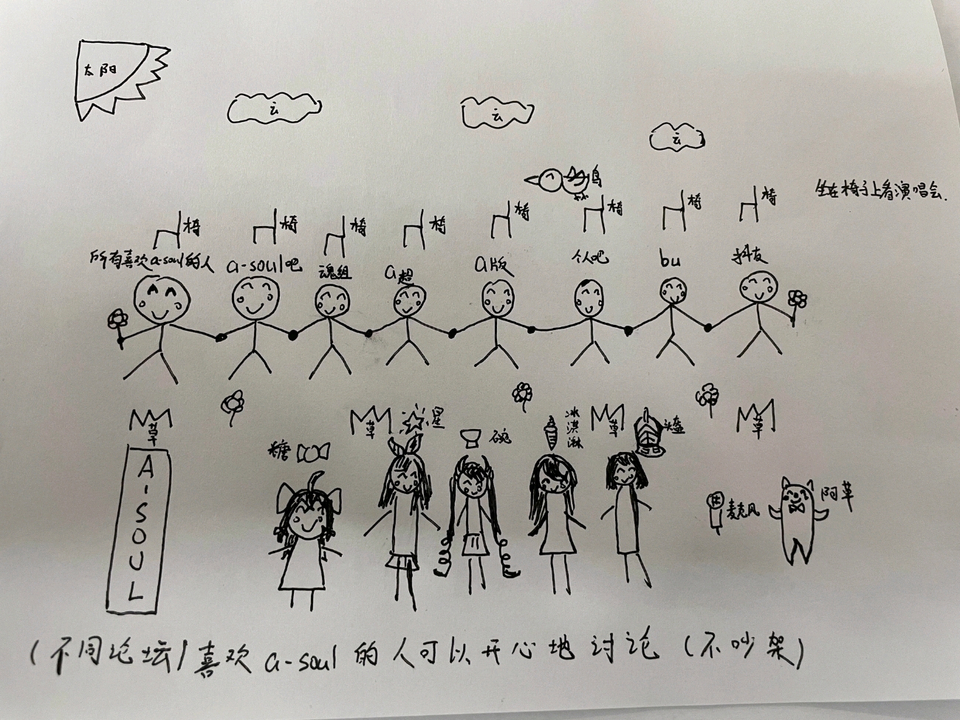 太阳
云
云
云
鸟
椅 椅 椅 椅 椅 椅 椅 椅
坐在椅子上看演唱会.
所有喜欢a-soul的人 a-soul吧 魂组 a超 a版 个人吧 bu 抖友
草 草 草 草
星
碗
冰淇淋
糖
A-SOUL
麦克风
阿草
(不同论坛)喜欢a-soul的人可以开心地讨论(不吵架)